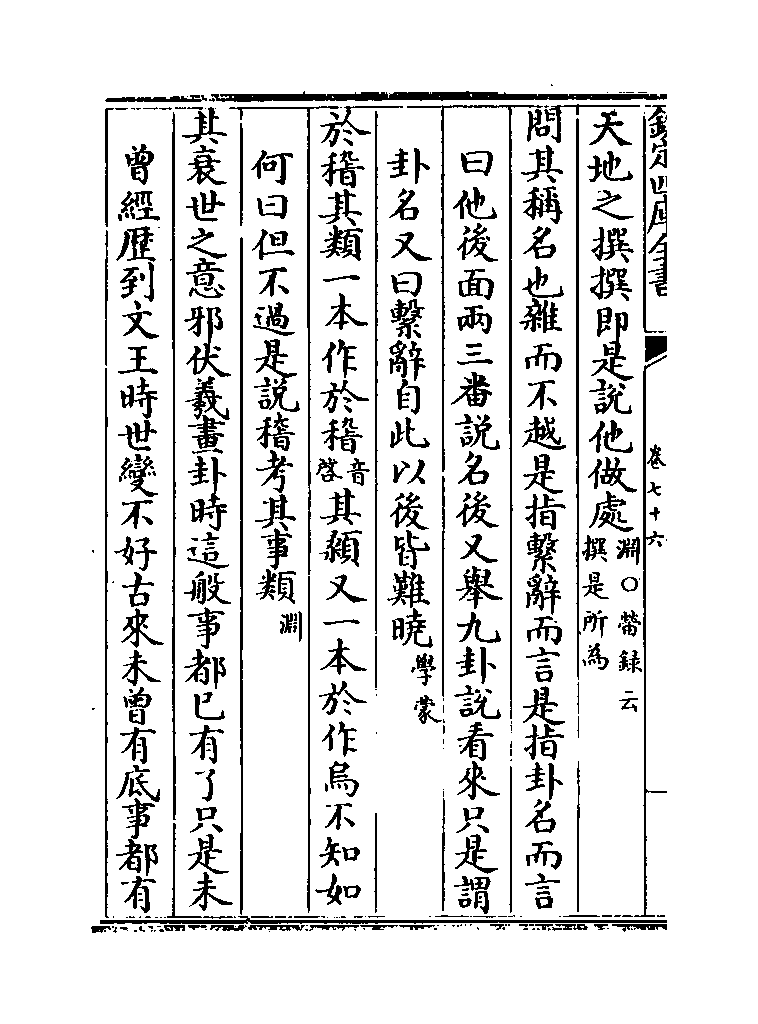 欽定四庫全書
卷七十六
天地之撰撰即是說他做處淵○㽦録云撰是所為
問其稱名也雜而不越是指繫辭而言是指卦名而言
曰他後面兩三番説名後又舉九卦說看來只是謂
卦名又曰繫辭自此以後皆難曉學蒙
於稽其類一本作於稽音啓其類又一本於作烏不知如
何曰但不過是説稽考其事類淵
其衰世之意邪伏羲畫卦時這般事都已有了只是未
曾經歴到文王時世變不好古來未曾有底事都有